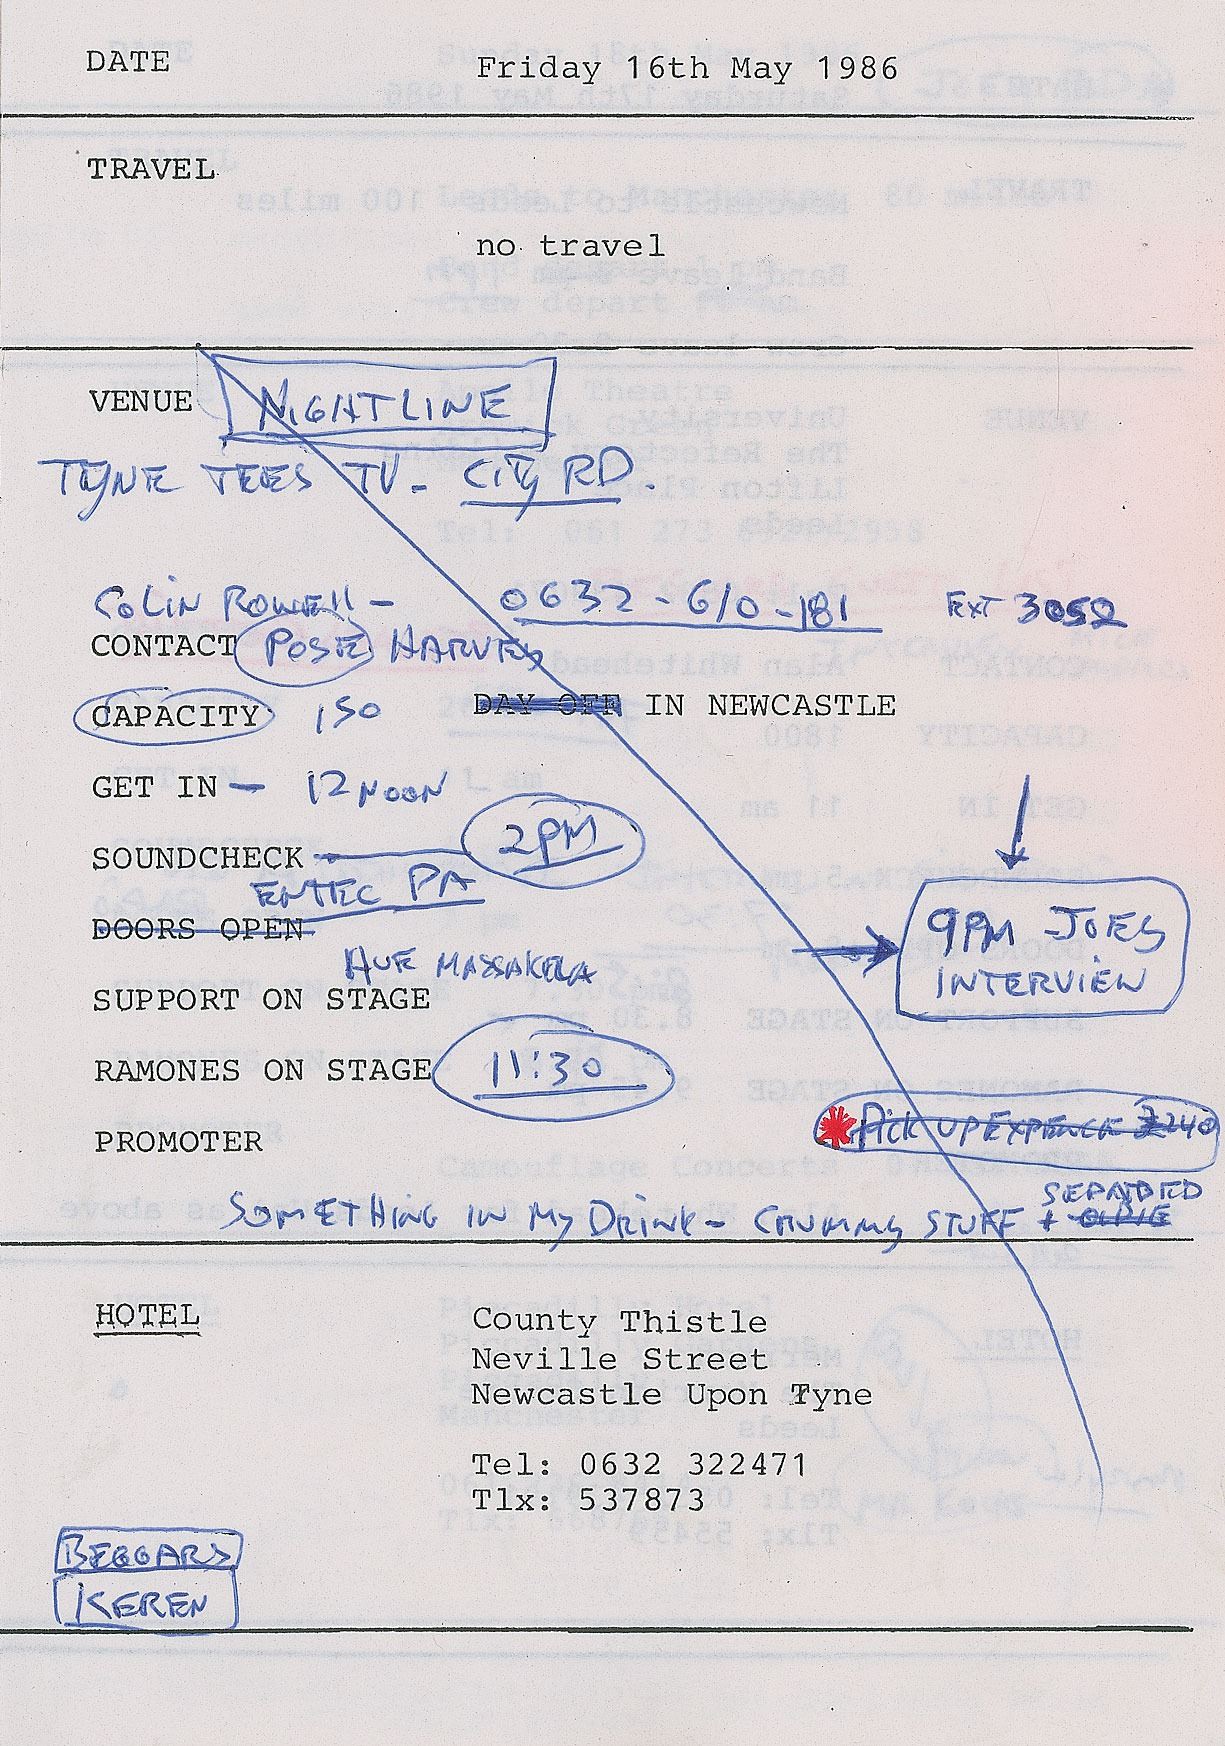 DATE Friday 16th May 1986
TRAVEL
no travel
VENUE NIGHTLINE
TYNE TEES TV - CITY RD.
COLIN ROWELL - 0632-610-181 EXT 3052
CONTACT POSIE HARVEY
CAPACITY 150 DAY OFF IN NEWCASTLE
GET IN - 12 NOON
SOUNDCHECK 2PM
ENTEC PA
9PM JOEY
INTERVIEW
DOORS OPEN
HUE MASSAKELA
SUPPORT ON STAGE
RAMONES ON STAGE 11:30
PICK UP EXPENCE 240
PROMOTER
SEDATED
SOMETHING IN MY DRINK - CRUMMY STUFF +
HOTEL County Thistle
Neville Street
Newcastle Upon Tyne
Tel: 0632 322471
Tlx: 537873
BEGGARS
KEREN